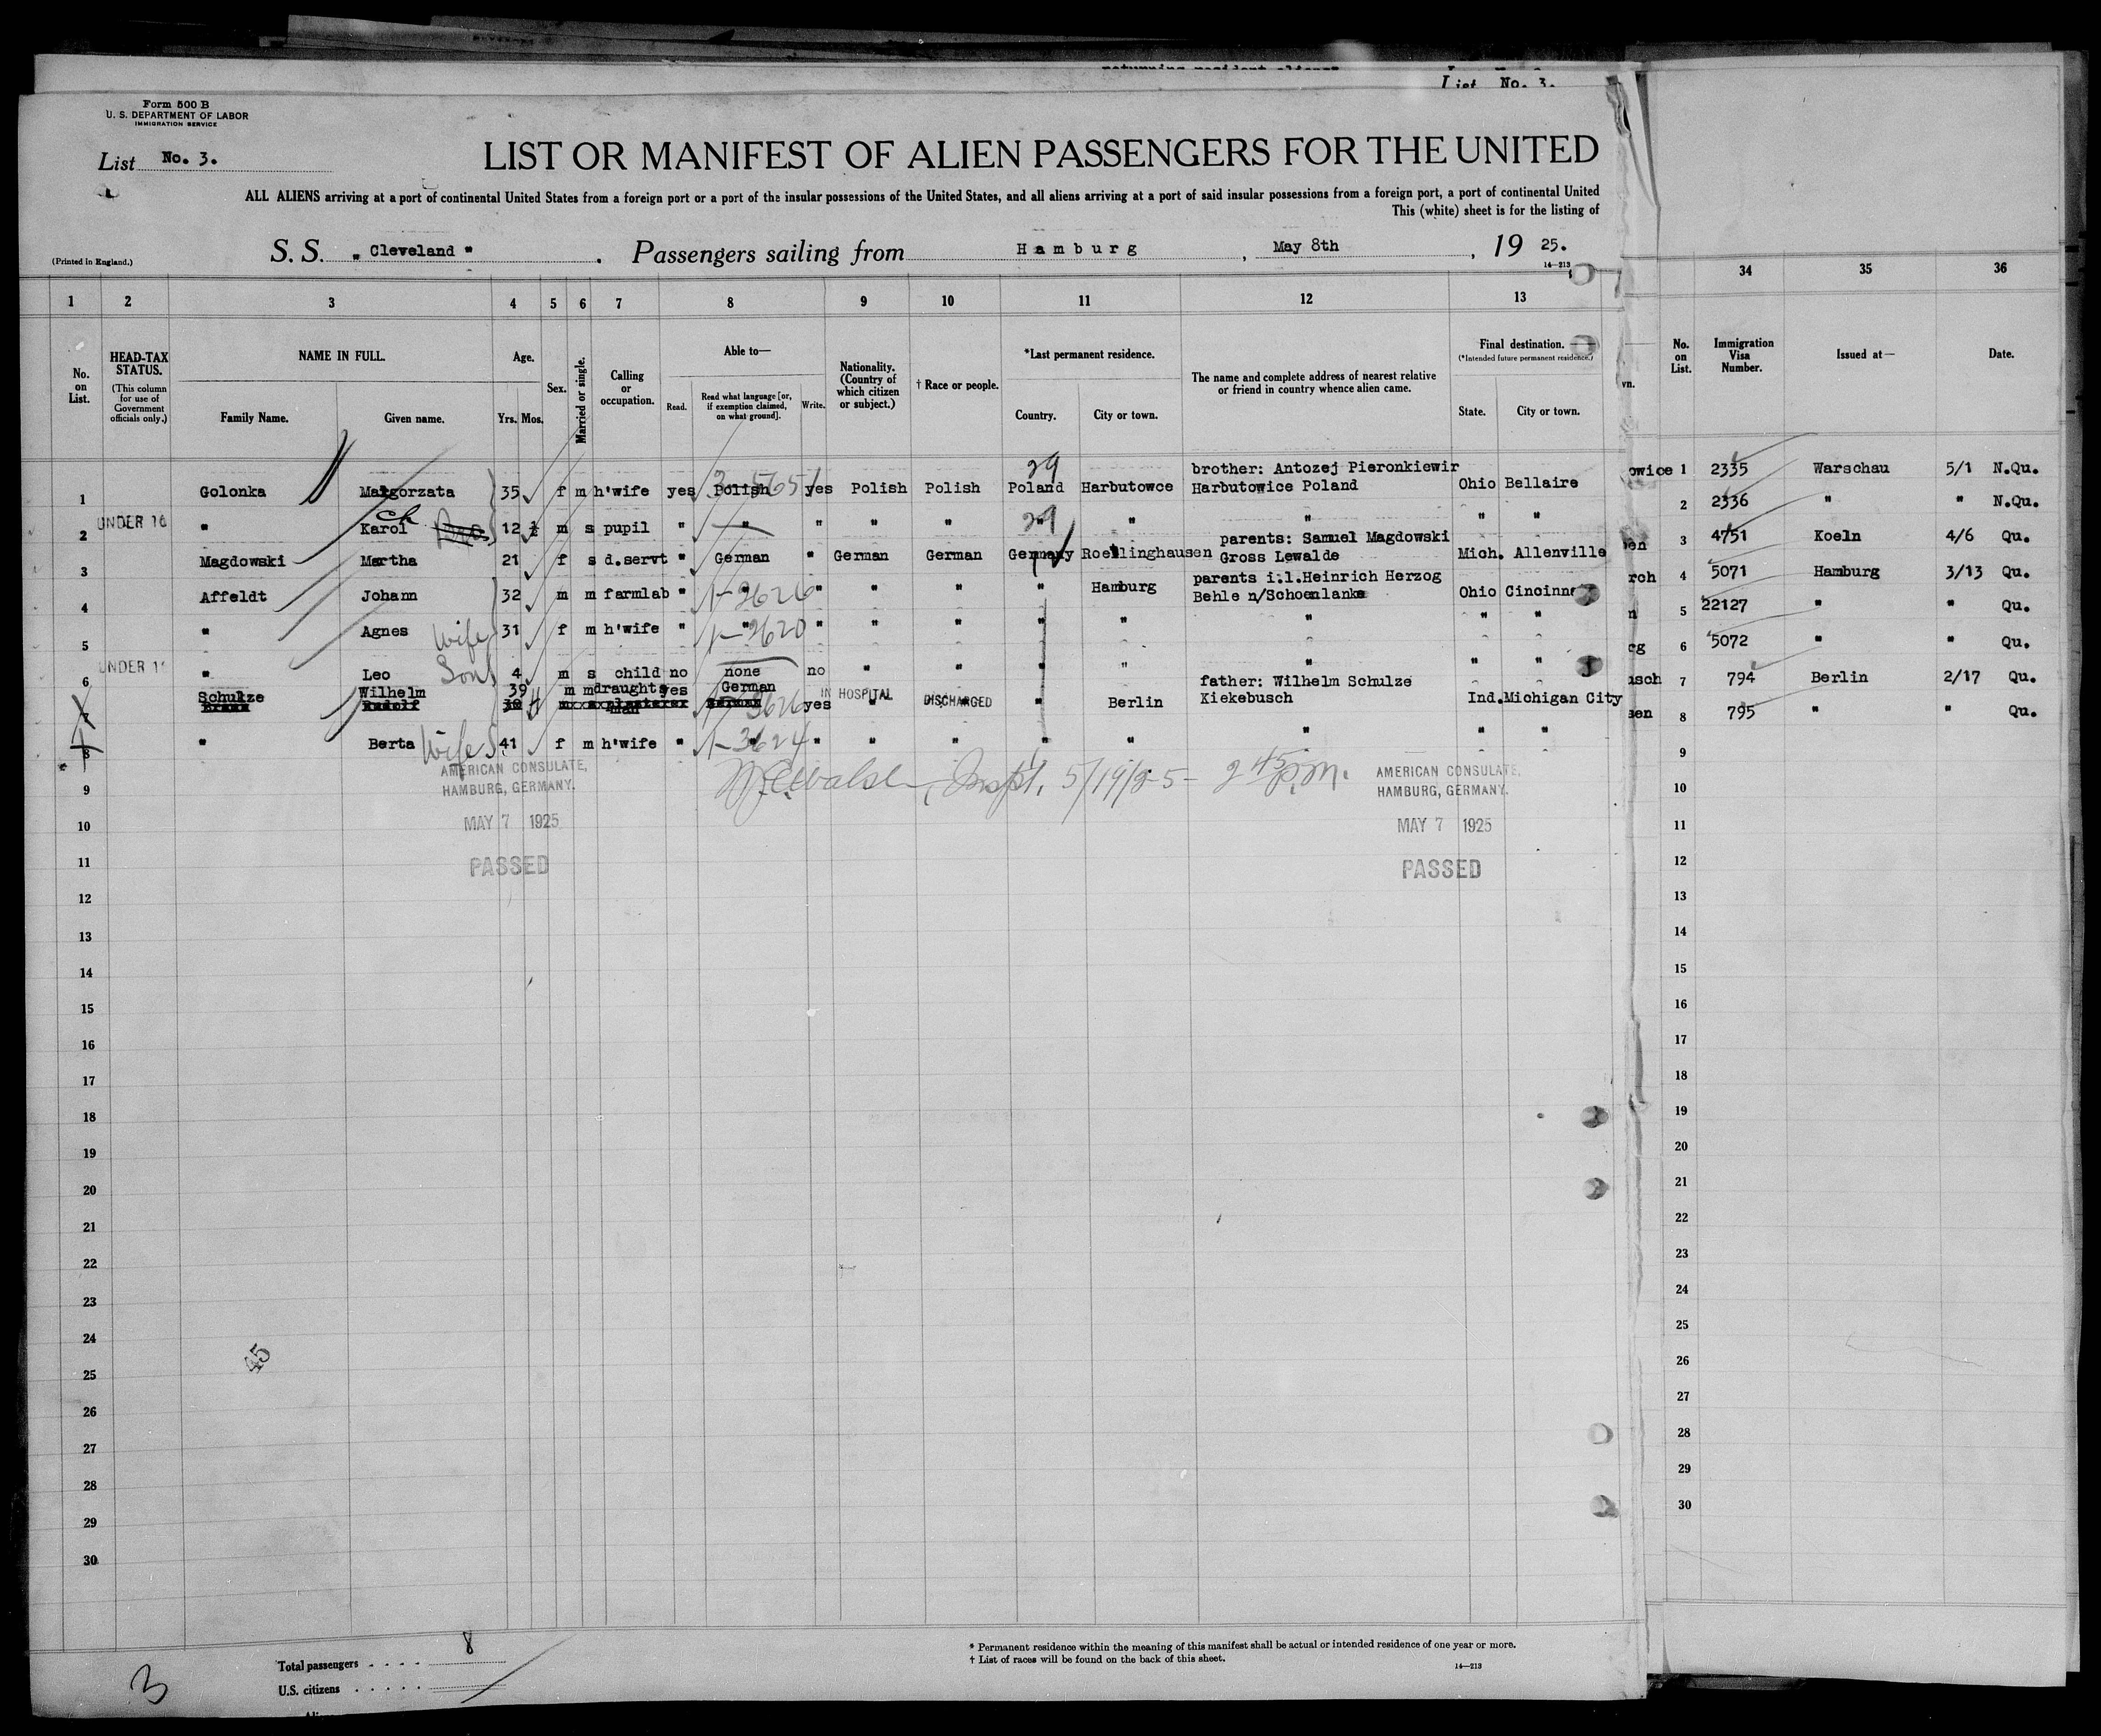 List No. 3.
Form 500 B
U. S. DEPARTMENT OF LABOR
IMMIGRATION SERVICE
List No. 3.
LIST OR MANIFEST OF ALIEN PASSENGERS FOR THE UNITED
ALL ALIENS arriving at a port of continental United States from a foreign port or a port of the insular possessions of the United States, and all aliens arriving at a port of said insular possessions from a foreign port, a port of continental United
This (white) sheet is for the listing of
S. S. „ Cleveland " . Passengers sailing from Hamburg , May 8th , 19 25.
(Printed in England.)
14—213
1 2 3 4 5 6 7 8 9 10 11 12 13 34 35 36
No. on List.
HEAD-TAX STATUS.
(This column for use of Government officials only.)
NAME IN FULL.
Family Name. Given name.
Age.
Yrs. Mos.
Sex.
Married or single.
Calling or occupation.
Able to—
Read. Read what language [or, if exemption claimed, on what ground]. Write.
Nationality. (Country of which citizen or subject.)
† Race or people.
*Last permanent residence.
Country. City or town.
The name and complete address of nearest relative or friend in country whence alien came.
Final destination.
(*Intended future permanent residence.)
State. City or town.
No. on List.
Immigration Visa Number.
Issued at—
Date.
29
brother: Antozej Pieronkiewir
1 Golonka Malgorzata 35 f m h'wife yes Polish yes Polish Polish Poland Harbutowce Harbutowice Poland Ohio Bellaire
owice 1 2335 Warschau 5/1 N.Qu.
2 UNDER 16 " Karol 12 ½ m s pupil " " " " " " " " " "
2 2336 " " N.Qu.
parents: Samuel Magdowski
3 Magdowski Martha 21 f s d.servt " German " German German Germany Roellinghausen Gross Lewalde Mich. Allenville
en 3 4751 Koeln 4/6 Qu.
parents i.l.Heinrich Herzog
4 Affeldt Johann 32 m m farmlab " 1-2626 " " " " Hamburg Behle n/Schoenlanke Ohio Cincinn
rch 4 5071 Hamburg 3/13 Qu.
5 " Agnes Wife 31 f m h'wife " 1-2620 " " " " " " " "
n 5 22127 " " Qu.
6 UNDER 1 " Leo Son 4 m s child no none no " " " " " " "
cg 6 5072 " " Qu.
father: Wilhelm Schulze
7 Schulze Wilhelm 39 m m draughts man yes German yes " IN HOSPITAL DISCHARGED " Berlin Kiekebusch Ind. Michigan City
usch 7 794 Berlin 2/17 Qu.
8 " Berta Wife 41 f m h'wife " 1-3624 " " " " " " " "
sen 8 795 " " Qu.
Inspt. 5/19/25- 2 45 p.m.
AMERICAN CONSULATE,
HAMBURG, GERMANY.
MAY 7 1925
PASSED
AMERICAN CONSULATE,
HAMBURG, GERMANY.
MAY 7 1925
PASSED
9 9
10 10
11 11
12 12
13 13
14 14
15 15
16 16
17 17
18 18
19 19
20 20
21 21
22 22
23 23
24 24
45
25 25
26 26
27 27
28 28
29 29
30 30
Total passengers . . . . 8
U.S. citizens . . . . .
3
* Permanent residence within the meaning of this manifest shall be actual or intended residence of one year or more.
† List of races will be found on the back of this sheet.
14—213